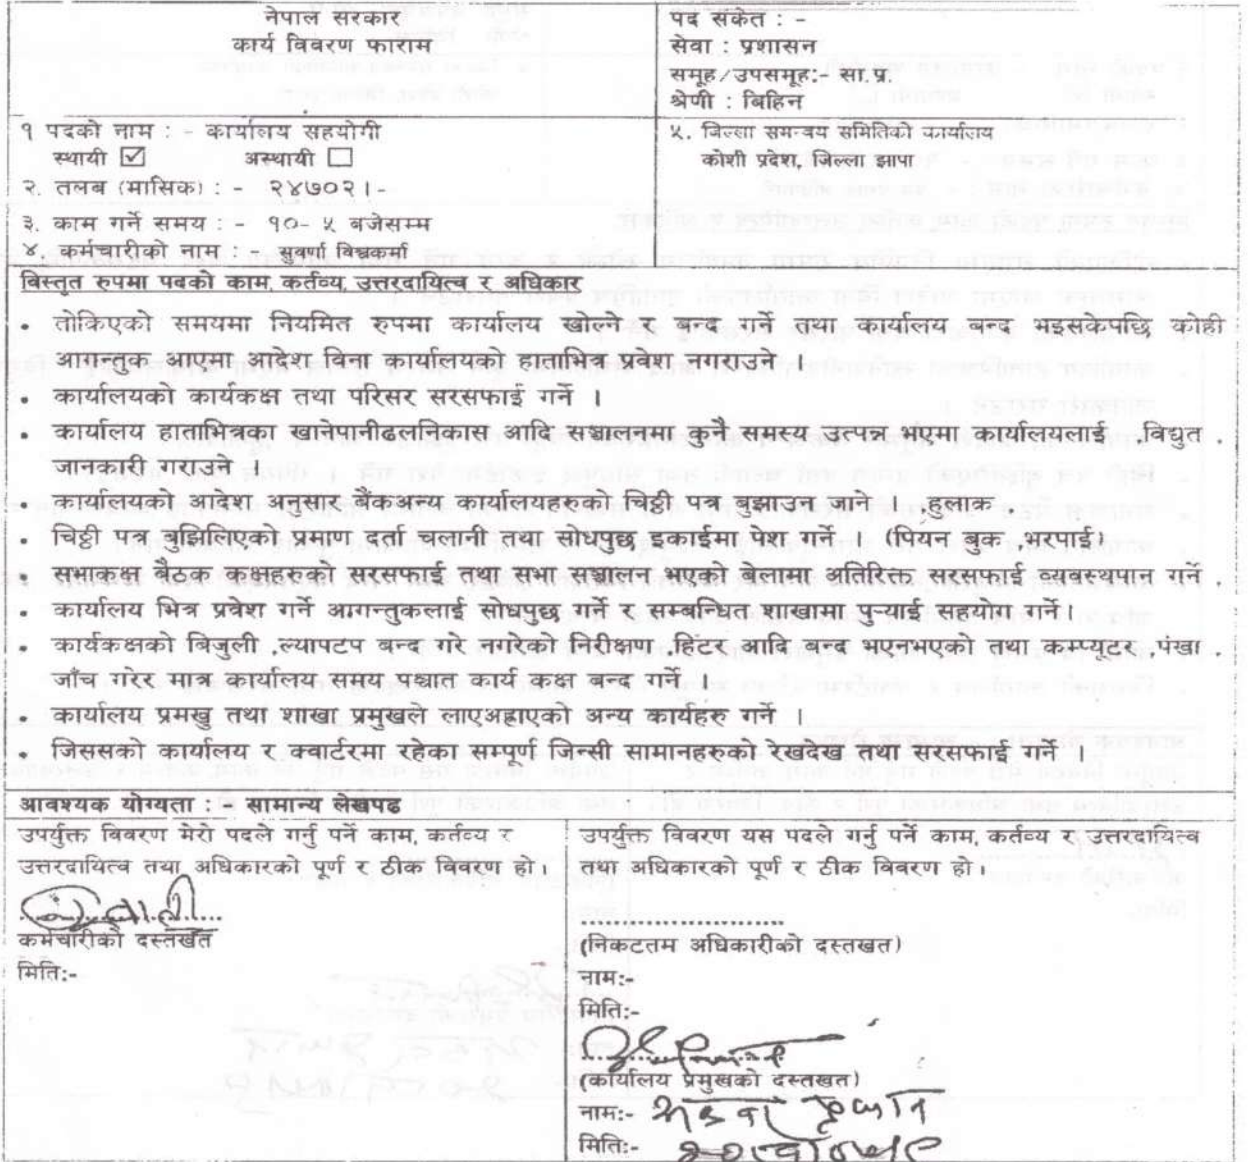 नेपाल सरकार
कार्य विवरण फाराम
पद संकेत : -
सेवा : प्रशासन
समूह/उपसमूह:- सा.प्र.
श्रेणी : बिहिन
१ पदको नाम : - कार्यालय सहयोगी
स्थायी ☑ अस्थायी □
२. तलब (मासिक) : - २४७०२।-
३. काम गर्ने समय : - १०- ५ बजेसम्म
४. कर्मचारीको नाम : - सुवर्णा विश्वकर्मा
५. जिल्ला समन्वय समितिको कार्यालय
कोशी प्रदेश, जिल्ला झापा
बिस्तृत रुपमा पदको काम, कर्तव्य, उत्तरदायित्व र अधिकार
• तोकिएको समयमा नियमित रुपमा कार्यालय खोल्ने र बन्द गर्ने तथा कार्यालय बन्द भइसकेपछि कोही
आगन्तुक आएमा आदेश विना कार्यालयको हाताभित्र प्रवेश नगराउने ।
• कार्यालयको कार्यकक्ष तथा परिसर सरसफाई गर्ने ।
• कार्यालय हाताभित्रका खानेपानीढलनिकास आदि सञ्चालनमा कुनै समस्य उत्पन्न भएमा कार्यालयलाई , विद्युत ,
जानकारी गराउने ।
• कार्यालयको आदेश अनुसार बैंकअन्य कार्यालयहरुको चिठ्ठी पत्र बुझाउन जाने । ,हुलाक
• चिठ्ठी पत्र बुझिलिएको प्रमाण दर्ता चलानी तथा सोधपुछ इकाईमा पेश गर्ने । (पियन बुक ,भरपाई)
• सभाकक्ष बैठक कक्षहरुको सरसफाई तथा सभा सञ्चालन भएको बेलामा अतिरिक्त सरसफाई व्यवस्थपान गर्ने ,
• कार्यालय भित्र प्रवेश गर्ने आगन्तुकलाई सोधपुछ गर्ने र सम्बन्धित शाखामा पुऱ्याई सहयोग गर्ने।
• कार्यकक्षको बिजुली ,ल्यापटप बन्द गरे नगरेको निरीक्षण ,हिटर आदि बन्द भएनभएको तथा कम्प्यूटर ,पंखा ,
जाँच गरेर मात्र कार्यालय समय पश्चात कार्य कक्ष बन्द गर्ने ।
• कार्यालय प्रमखु तथा शाखा प्रमुखले लाएअह्राएको अन्य कार्यहरु गर्ने ।
• जिससको कार्यालय र क्वार्टरमा रहेका सम्पूर्ण जिन्सी सामानहरुको रेखदेख तथा सरसफाई गर्ने ।
आवश्यक योग्यता : - सामान्य लेखपढ
उपर्युक्त बिवरण मेरो पदले गर्नु पर्ने काम, कर्तव्य र
उत्तरदायित्व तथा अधिकारको पूर्ण र ठीक बिवरण हो।
कर्मचारीको दस्तखत
मिति:-
उपर्युक्त विवरण यस पदले गर्नु पर्ने काम, कर्तव्य र उत्तरदायित्व
तथा अधिकारको पूर्ण र ठीक बिवरण हो।
............................
(निकटतम अधिकारीको दस्तखत)
नाम:-
मिति:-
(कार्यालय प्रमुखको दस्तखत)
नाम:-
मिति:-